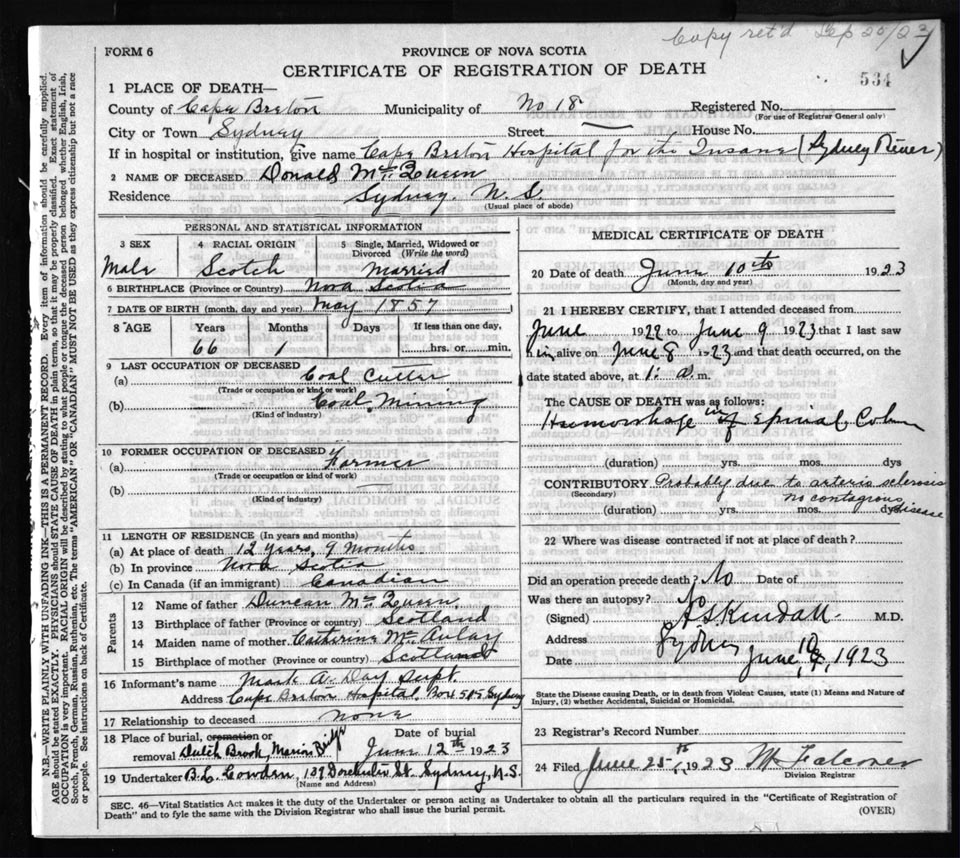 Copy ret'd Sep 20/23
FORM 6
PROVINCE OF NOVA SCOTIA
CERTIFICATE OF REGISTRATION OF DEATH
534
1 PLACE OF DEATH—
County of Cape Breton Municipality of No 18 Registered No.
(For use of Registrar General only)
City or Town Sydney Street — House No.
If in hospital or institution, give name Cape Breton Hospital for the Insane (Sydney River)
2 NAME OF DECEASED Donald McQueen
Residence Sydney. N. S.
(Usual place of abode)
PERSONAL AND STATISTICAL INFORMATION
3 SEX 4 RACIAL ORIGIN 5 Single, Married, Widowed or Divorced (Write the word)
Male Scotch Married
6 BIRTHPLACE (Province or Country) Nova Scotia
7 DATE OF BIRTH (month, day and year) May 1857
8 AGE Years Months Days If less than one day,
66 1 hrs. or min.
9 LAST OCCUPATION OF DECEASED
(a) Coal Cutter
(Trade or occupation or kind of work)
(b) Coal Mining
(Kind of industry)
10 FORMER OCCUPATION OF DECEASED
(a) Farmer
(Trade or occupation or kind of work)
(b)
(Kind of industry)
11 LENGTH OF RESIDENCE (In years and months)
(a) At place of death 12 years, 9 months
(b) In province Nova Scotia
(c) In Canada (if an immigrant) Canadian
Parents
12 Name of father Duncan McQueen
13 Birthplace of father (Province or country) Scotland
14 Maiden name of mother Catherine McAulay
15 Birthplace of mother (Province or country) Scotland
16 Informant's name Mark A. Day Supt
Address Cape Breton Hospital, Box 505 Sydney
17 Relationship to deceased none
18 Place of burial, cremation or Date of burial
removal Dutch Brook, Marion Bridge June 12th 1923
19 Undertaker B. L. Cowden, 139 Dorchester St. Sydney, N.S.
(Name and Address)
MEDICAL CERTIFICATE OF DEATH
20 Date of death June 10th 1923
(Month, day and year)
21 I HEREBY CERTIFY, that I attended deceased from
June 1922 to June 9 1923 that I last saw
him alive on June 8 1923 and that death occurred, on the
date stated above, at 1. a. m.
The CAUSE OF DEATH was as follows:
Haemorrhage in of Spinal Column
(duration) yrs. mos. dys
CONTRIBUTORY Probably due to arterio sclerosis
(Secondary) no contagious
(duration) yrs. mos. dys disease
22 Where was disease contracted if not at place of death?
Did an operation precede death? No Date of
Was there an autopsy? No
(Signed) A S Kendall M.D.
Address Sydney
Date June 1923
State the Disease causing Death, or in death from Violent Causes, state (1) Means and Nature of
Injury, (2) whether Accidental, Suicidal or Homicidal.
23 Registrar's Record Number
24 Filed June 25th 1923 Falconer
Division Registrar
SEC. 46—Vital Statistics Act makes it the duty of the Undertaker or person acting as Undertaker to obtain all the particulars required in the "Certificate of Registration of
Death" and to fyle the same with the Division Registrar who shall issue the burial permit. (OVER)
N.B.—WRITE PLAINLY WITH UNFADING INK—THIS IS A PERMANENT RECORD. Every item of information should be carefully supplied.
AGE should be stated EXACTLY. PHYSICIANS should STATE CAUSE OF DEATH in plain terms, so that it may be properly classified. Exact statement of
OCCUPATION is very important. RACIAL ORIGIN will be described by stating to what people or tongue the deceased person belonged whether English, Irish,
Scotch, French, German, Russian, Ruthenian, etc. The terms "AMERICAN" OR "CANADIAN" MUST NOT BE USED as they express citizenship but not a race
or people. See instructions on back of Certificate.